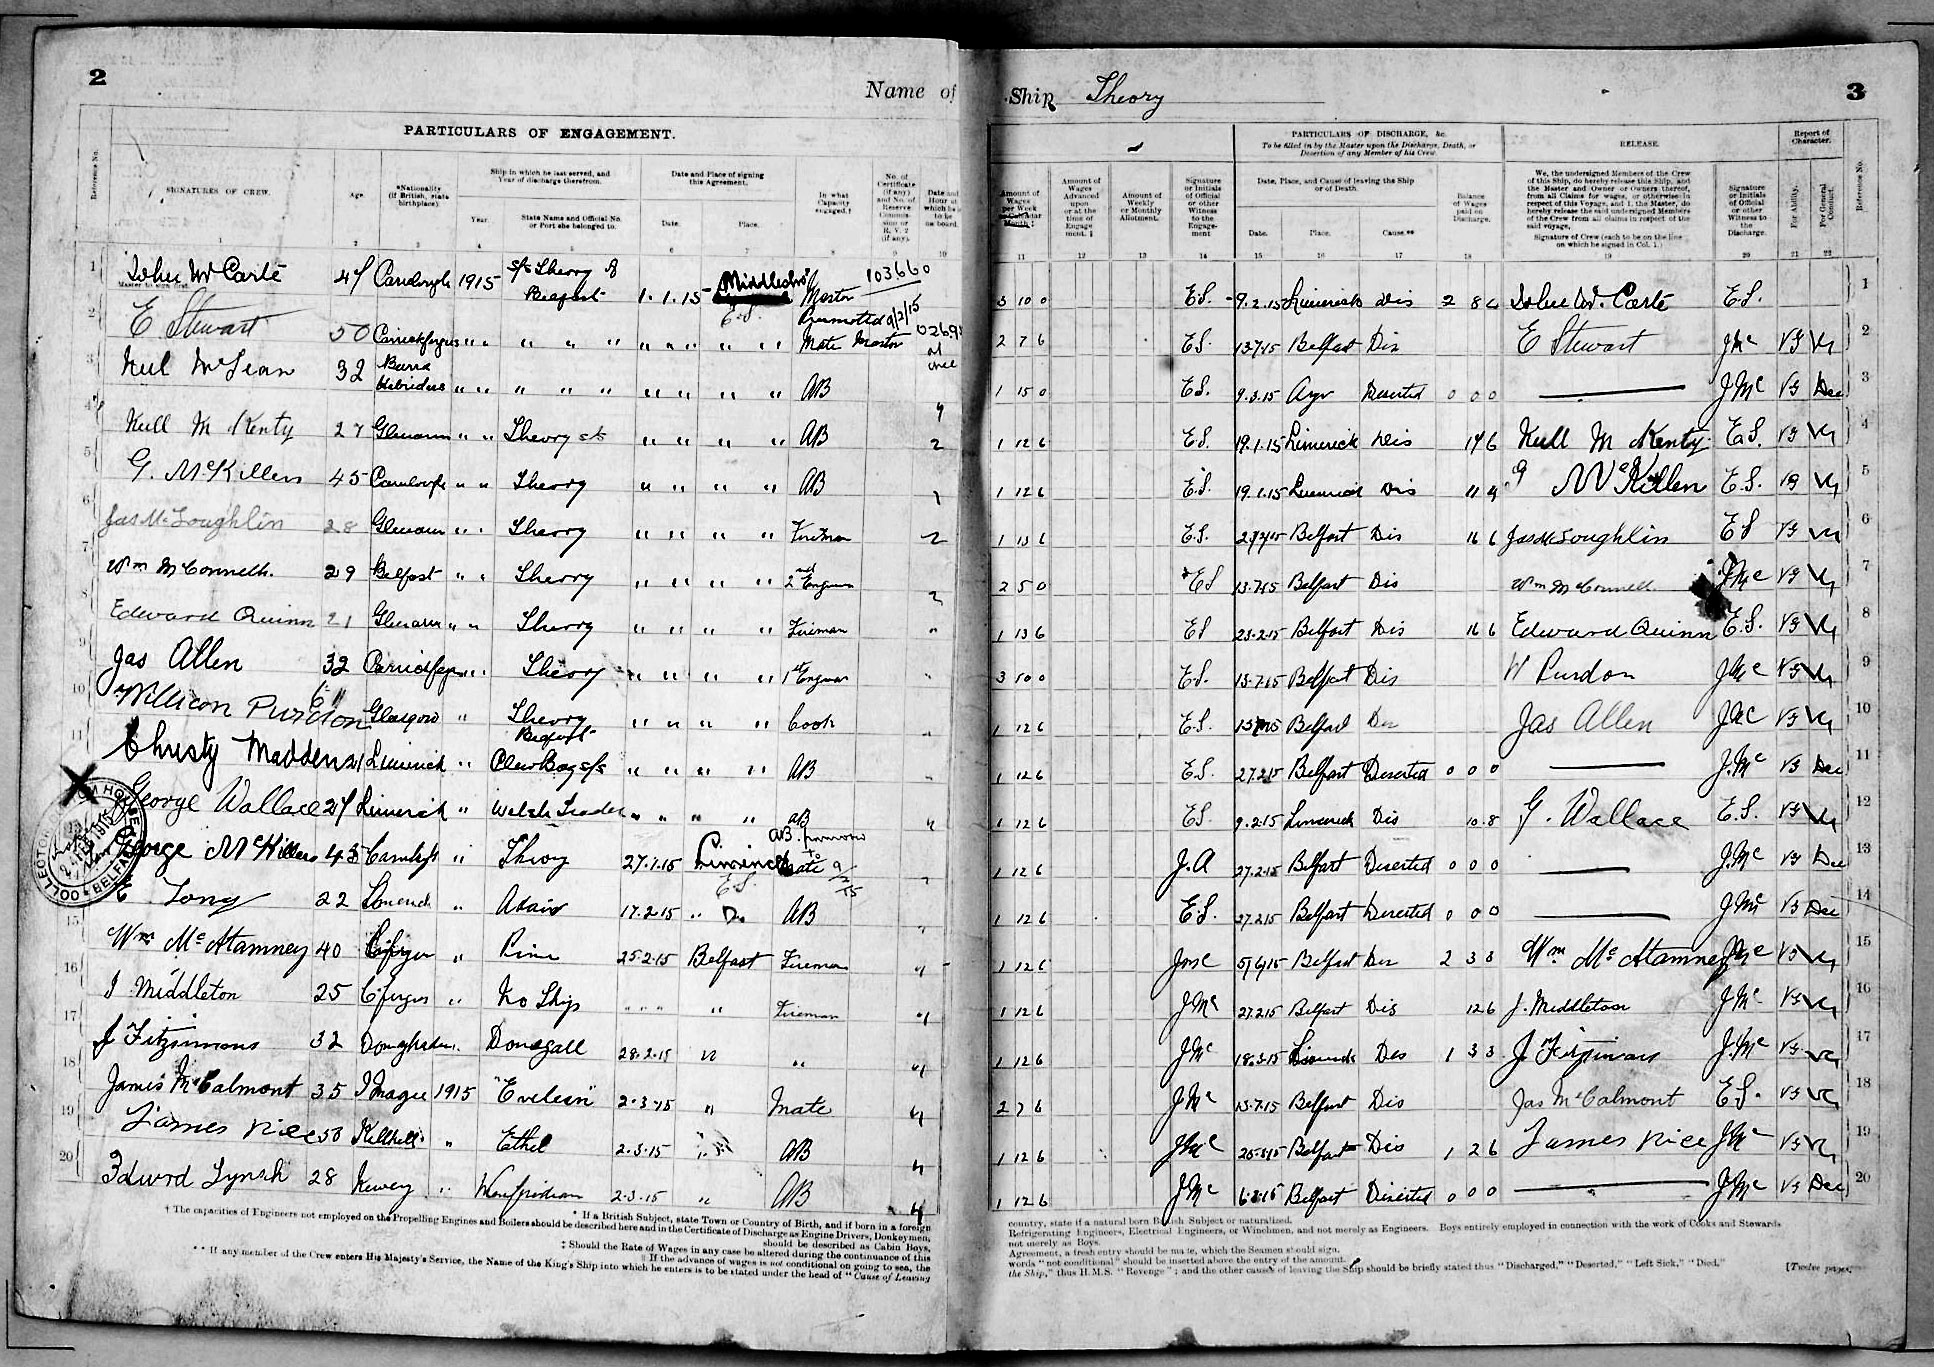 2
Name of Ship Theory
3
PARTICULARS OF ENGAGEMENT.
Reference No.
SIGNATURES OF CREW.
Age.
*Nationality (if British, state birthplace).
Ship in which he last served, and Year of discharge therefrom.
Year.
State Name and Official No. or Port she belonged to.
Date and Place of signing this Agreement.
Date.
Place.
In what Capacity engaged.†
No. of Certificate (if any) and No. of Reserve Commission or R.V. 2 (if any).
Date and Hour at which he is to be on board.
1 2 3 4 5 6 7 8 9 10
Amount of Wages per Week or Calendar Month ‡
Amount of Wages Advanced upon or at the time of Engagement. ‖
Amount of Weekly or Monthly Allotment.
Signature or Initials of Official or other Witness to the Engagement
PARTICULARS OF DISCHARGE, &c.
To be filled in by the Master upon the Discharge, Death, or Desertion of any Member of his Crew.
Date, Place, and Cause of leaving the Ship or of Death.
Date.
Place.
Cause.**
Balance of Wages paid on Discharge.
RELEASE.
We, the undersigned Members of the Crew of this Ship, do hereby release this Ship, and the Master and Owner or Owners thereof, from all Claims for wages, or otherwise in respect of this Voyage, and I, the Master, do hereby release the said undersigned Members of the Crew from all claims in respect of the said voyage.
Signature of Crew (each to be on the line on which he signed in Col. 1.)
Signature or Initials of Official or other Witness to the Discharge.
Report of Character.
For Ability.
For General Conduct.
Reference No.
11 12 13 14 15 16 17 18 19 20 21 22
Master to sign first.
1 John McCarte 47 Carnlough 1915 s/s Theory of Belfast 1.1.15 Middlesbro' E.S. Master 103660 3 10 0 E.S. 9.2.15 Limerick Dis 2 8 6 John Mc. Carte E.S. 1
2 E Stewart 50 Carrickfergus " " " " " " " " " " Mate Promoted Master 9/2/15 2 7 6 E.S. 13.7.15 Belfast Dis E Stewart J Mc VG VG 2
3 Neil McLean 32 Barra Hebrides " " " " " " " " " AB 1 15 0 E.S. 9.3.15 Ayr Deserted 0 0 0 J Mc VG Dec 3
4 Neill McKenty 27 Glenarm " " Theory s/s " " " " AB 1 12 6 E.S. 19.1.15 Limerick Dis 17 6 Neill McKenty E.S. VG VG 4
5 G. McKillen 45 Carnlough " " Theory " " " " AB 1 12 6 E.S. 19.1.15 Limerick Dis G McKillen E.S. VG VG 5
6 Jas McLoughlin 28 Glenarm " " Theory " " " " Fireman 1 13 6 E.S. Belfast Dis 16 6 Jas McLoughlin E S VG VG 6
7 Wm McConnell. 29 Belfast " " Theory " " " " 2nd Engineer 2 5 0 E S 13.7.15 Belfast Dis Wm McConnell J Mc VG VG 7
8 Edward Quinn 21 Glenarm " " Theory " " " " Fireman 1 13 6 E S 23.2.15 Belfast Dis 16 6 Edward Quinn E.S. VG VG 8
9 Jas Allen 32 Carrickfergus " " Theory " " " " 1st Engineer 3 10 0 E.S. 13.7.15 Belfast Dis W Purdon J Mc VG VG 9
10 William Purdon Glasgow " Theory Belfast " " " " Cook 1 12 6 E.S. Belfast Dis Jas Allen J Mc VG VG 10
11 Christy Madden 21 Limerick " Clew Bay s/s " " " " AB 1 12 6 E.S. 27.2.15 Belfast Deserted 0 0 0 J. Mc VG Dec 11
George Wallace 27 Limerick " Welsh Trader " " " " AB 1 12 6 E S 9.2.15 Limerick Dis 10 8 G. Wallace E.S. VG VG 12
George McKillen 45 Carnlough " Theory 27.1.15 Limerick E.S. AB promoted to Mate 9/2/15 1 12 6 J. A 27.2.15 Belfast Deserted 0 0 0 J. Mc VG Dec 13
E Long 22 Limerick " Adair 17.2.15 " Do AB 1 12 6 E S. 27.2.15 Belfast Deserted 0 0 0 J Mc VG Dec 14
15 Wm McAtamney 40 C'fergus " 25.2.15 Belfast Fireman 1 12 6 J Mc Belfast Dis 2 3 8 Wm McAtamney J Mc VG VG 15
16 J Middleton 25 C'fergus " No Ship " " " " Fireman 1 12 6 J Mc 27.2.15 Belfast Dis 12 6 J. Middleton J Mc VG VG 16
17 J Fitzsimons 32 Donaghadee " Donegall 28.2.15 " " 1 12 6 J Mc 18.3.15 Limerick Dis 1 3 3 J Fitzsimons J. Mc VG VG 17
18 James McCalmont 35 I Magee 1915 "Eveleen" 2.3.15 " Mate 2 7 6 J Mc 13.7.15 Belfast Dis Jas McCalmont E S. VG VG 18
19 James Rice 50 Killkeel " Ethel 2.3.15 " AB 1 12 6 J Mc Belfast Dis 1 2 6 James Rice J Mc VG VG 19
20 Edwrd Lynch 28 Newry " 2.3.15 " AB 1 12 6 J Mc 6.3.15 Belfast Deserted 0 0 0 J Mc VG Dec 20
CUSTOM HOUSE BELFAST COLLECTOR
FEB 1915
* If a British Subject, state Town or Country of Birth, and if born in a foreign country, state if a natural born British Subject or naturalized.
† The capacities of Engineers not employed on the Propelling Engines and Boilers should be described here and in the Certificate of Discharge as Engine Drivers, Donkeymen, Refrigerating Engineers, Electrical Engineers, or Winchmen, and not merely as Engineers. Boys entirely employed in connection with the work of Cooks and Stewards should be described as Cabin Boys, not merely as Boys.
‡ Should the Rate of Wages in any case be altered during the continuance of this Agreement, a fresh entry should be made, which the Seamen should sign.
‖ If the advance of wages is not conditional on going to sea, the words "not conditional" should be inserted above the entry of the amount.
** If any member of the Crew enters His Majesty's Service, the Name of the King's Ship into which he enters is to be stated under the head of "Cause of Leaving the Ship," thus H.M.S. "Revenge"; and the other causes of leaving the Ship should be briefly stated thus "Discharged," "Deserted," "Left Sick," "Died."
[Twelve pages.